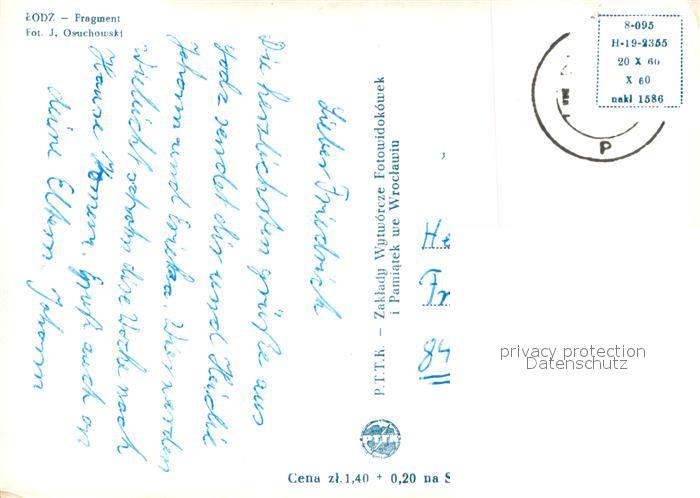 ŁÓDŹ – Fragment
Fot. J. Osuchowski
8-095
H-19-2355
20 X 60
X 60
nakł 1586
P
Lieber Friedrich
Die herzlichsten grüße aus
Lodz sendet dir und Heidi
Johann und Erika. Wir werden
villicht schon dise Woche nach
Hause komm. Gruß auch an
deine Eltern. Johann
P.T.T.K. – Zakłady Wytwórcze Fotowidokówek
i Pamiątek we Wrocławiu
He
Fr
84
privacy protection
Datenschutz
PTTK
Cena zł.1,40 + 0,20 na S